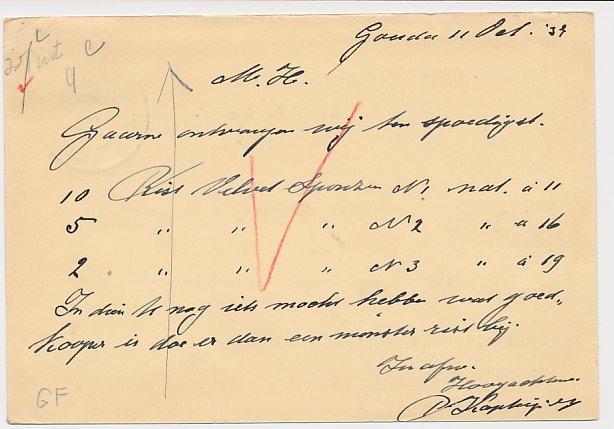 Gouda 11 Oct. '34
M. H.
Gaarne ontvangen wij ten spoedigst.
10 Rist Velvet Sponzen N1 nat. à 11
5 " " " N2 " à 16
2 " " " N3 " à 19
In dien U nog iets mocht hebben wat goed-
kooper is doe er dan een monster rist bij.
Inafw.
Hoogachtend
GF